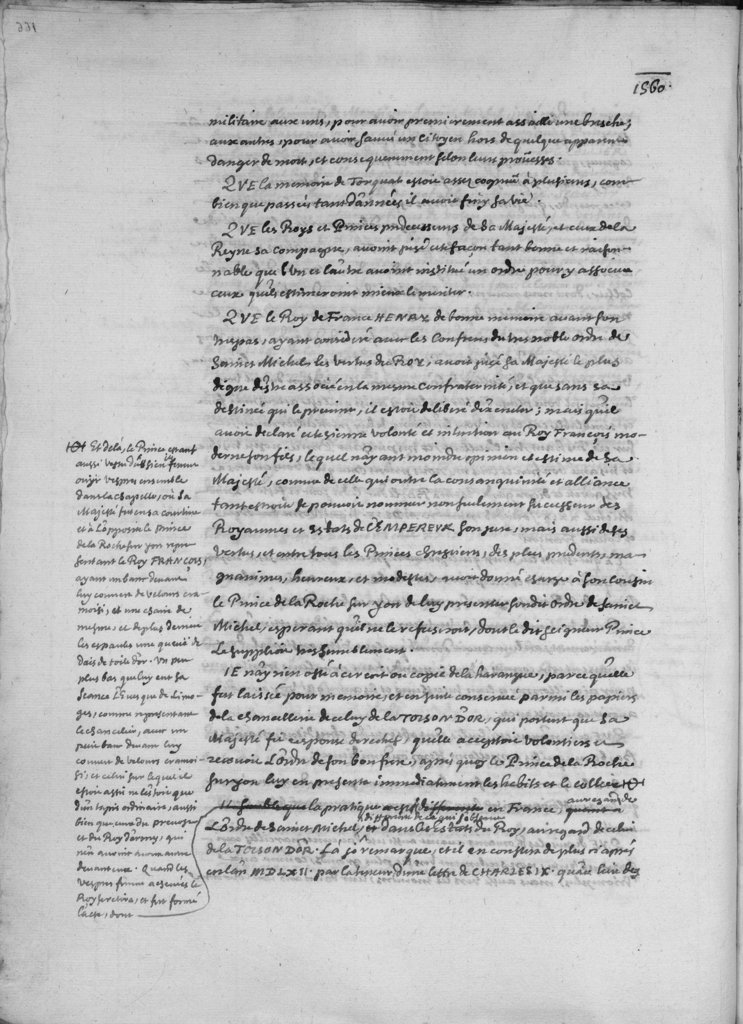 1560.
militaire aux uns, pour avoir premierement assailli une bresche,
aux autres, pour avoir sauvé un Citoyen hors de quelque apparent
danger de mort, et consequemment selon leurs proüesses.
QVE la memoire de Torquat estoit assez cognuë à plusieurs, com-
bien que passés tant d'années il avoit finy sa vie.
QVE les Roys et Princes predecesseurs de Sa Majesté, et ceux de la
Reyne sa Compagne, avoient jugé ceste façon tant bonne et raison-
nable que l'un et l'autre avoient institué un ordre pour y associer
ceux qu'ils estimeroient mieux le meriter.
QVE le Roy de France HENRY de bonne memoire avant son
trespas, ayant consideré avec les Confreres du tres noble ordre de
Sainct Michel, les vertus du ROY, avoit jugé Sa Majesté le plus
digne d'estre associé en la mesme Confraternité; et que sans sa
destinée qui le prevint, il estoit deliberé d'executer; mais qu'il
avoit declaré ceste sienne volonté et intention au Roy François mo-
derne son fils, lequel n'ayant moindre opinion et estime de Sa
Majesté, comme de celle qui outre la consanguinité et alliance
tant estroite se pouvoit nommer non seulement successeur des
Royaumes et Estats de l'EMPEREUR son pere, mais aussi de ses
vertus, et entre tous les Princes chrestiens, des plus prudents, ma-
gnanimes, heureux, et modestes, avoit donné charge à son cousin
le Prince de la Roche sur yon de luy presenter son dit ordre de Sainct
Michel, esperant qu'il ne le refuseroit, dont le dit seigneur Prince
le supplioit tres humblement.
IE n'ay rien osté à ce recit ou copie de la harangue, parce qu'elle
fut laissée pour memoire, et en suite conservée parmi les papiers
de la chancellerie de celuy de la TOISON D'OR, qui portent que Sa
Majesté fit response de rechef, qu'elle acceptoit volontiers et
recevoit l'ordre de son bon frere, apres quoy le Prince de la Roche
sur yon luy en presenta immediatement les habits et le collier
Il semble que la pratique en France, au regard de
l'ordre de Sainct Michel, et dans les estats du Roy, au regard de celuy
differente de ce qui s'observe
de la TOISON D'OR. Là je remarque, et il en conste de plus ci apres
en l'an MDLXII. par la teneur d'une lettre de CHARLES IX.
Et de là, le Prince estant
aussi vestu
ouyr vespres ensemble
dans la chapelle, où Sa
Majesté fut en sa courtine
et à l'opposite le Prince
de la Roche sur yon repre-
sentant le Roy FRANÇOIS,
ayant un banc devant
luy couvert de velours cra-
moisi, et une chaire de
mesme, et de plus derriere
les espaules une queuë de
dais de toile d'or. Un peu
plus bas que luy eut sa
Seance l'Evesque de Limo-
ges, comme representant
le chancelier, avec un
petit banc devant luy
couvert de velours cramoi-
si; et celuy sur lequel il
estoit assis
d'un tapis ordinaire, aussi
bien que ceux du prevost
et du Roy d'armes, qui
n'en avoient aucun autre
devant eux. Quand les
vespres furent achevées le
Roy se retira, et fut formé
l'acte, dont